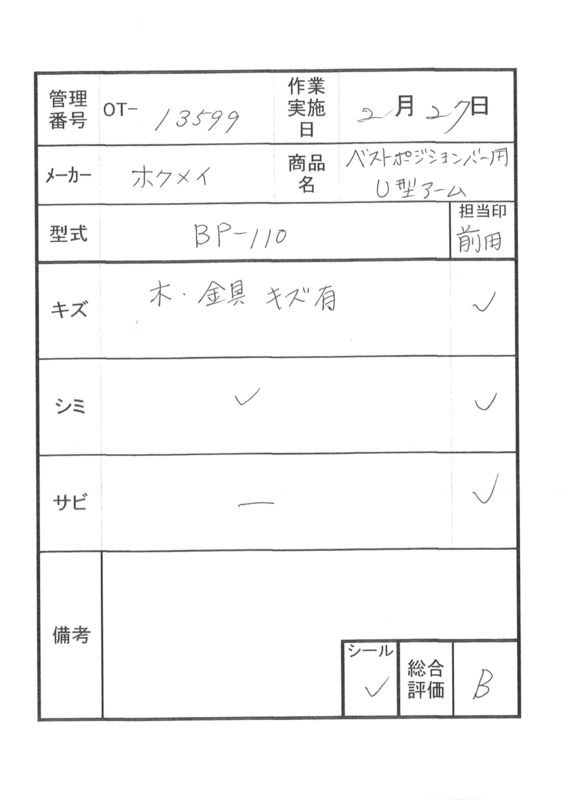 管理番号 OT-13599 作業実施日 2月27日
メーカー ホクメイ 商品名 ベストポジションバー用
U型アーム
型式 BP-110 担当印
前田
キズ 木・金具 キズ有 ✓
シミ ✓ ✓
サビ — ✓
備考
シール ✓ 総合評価 B